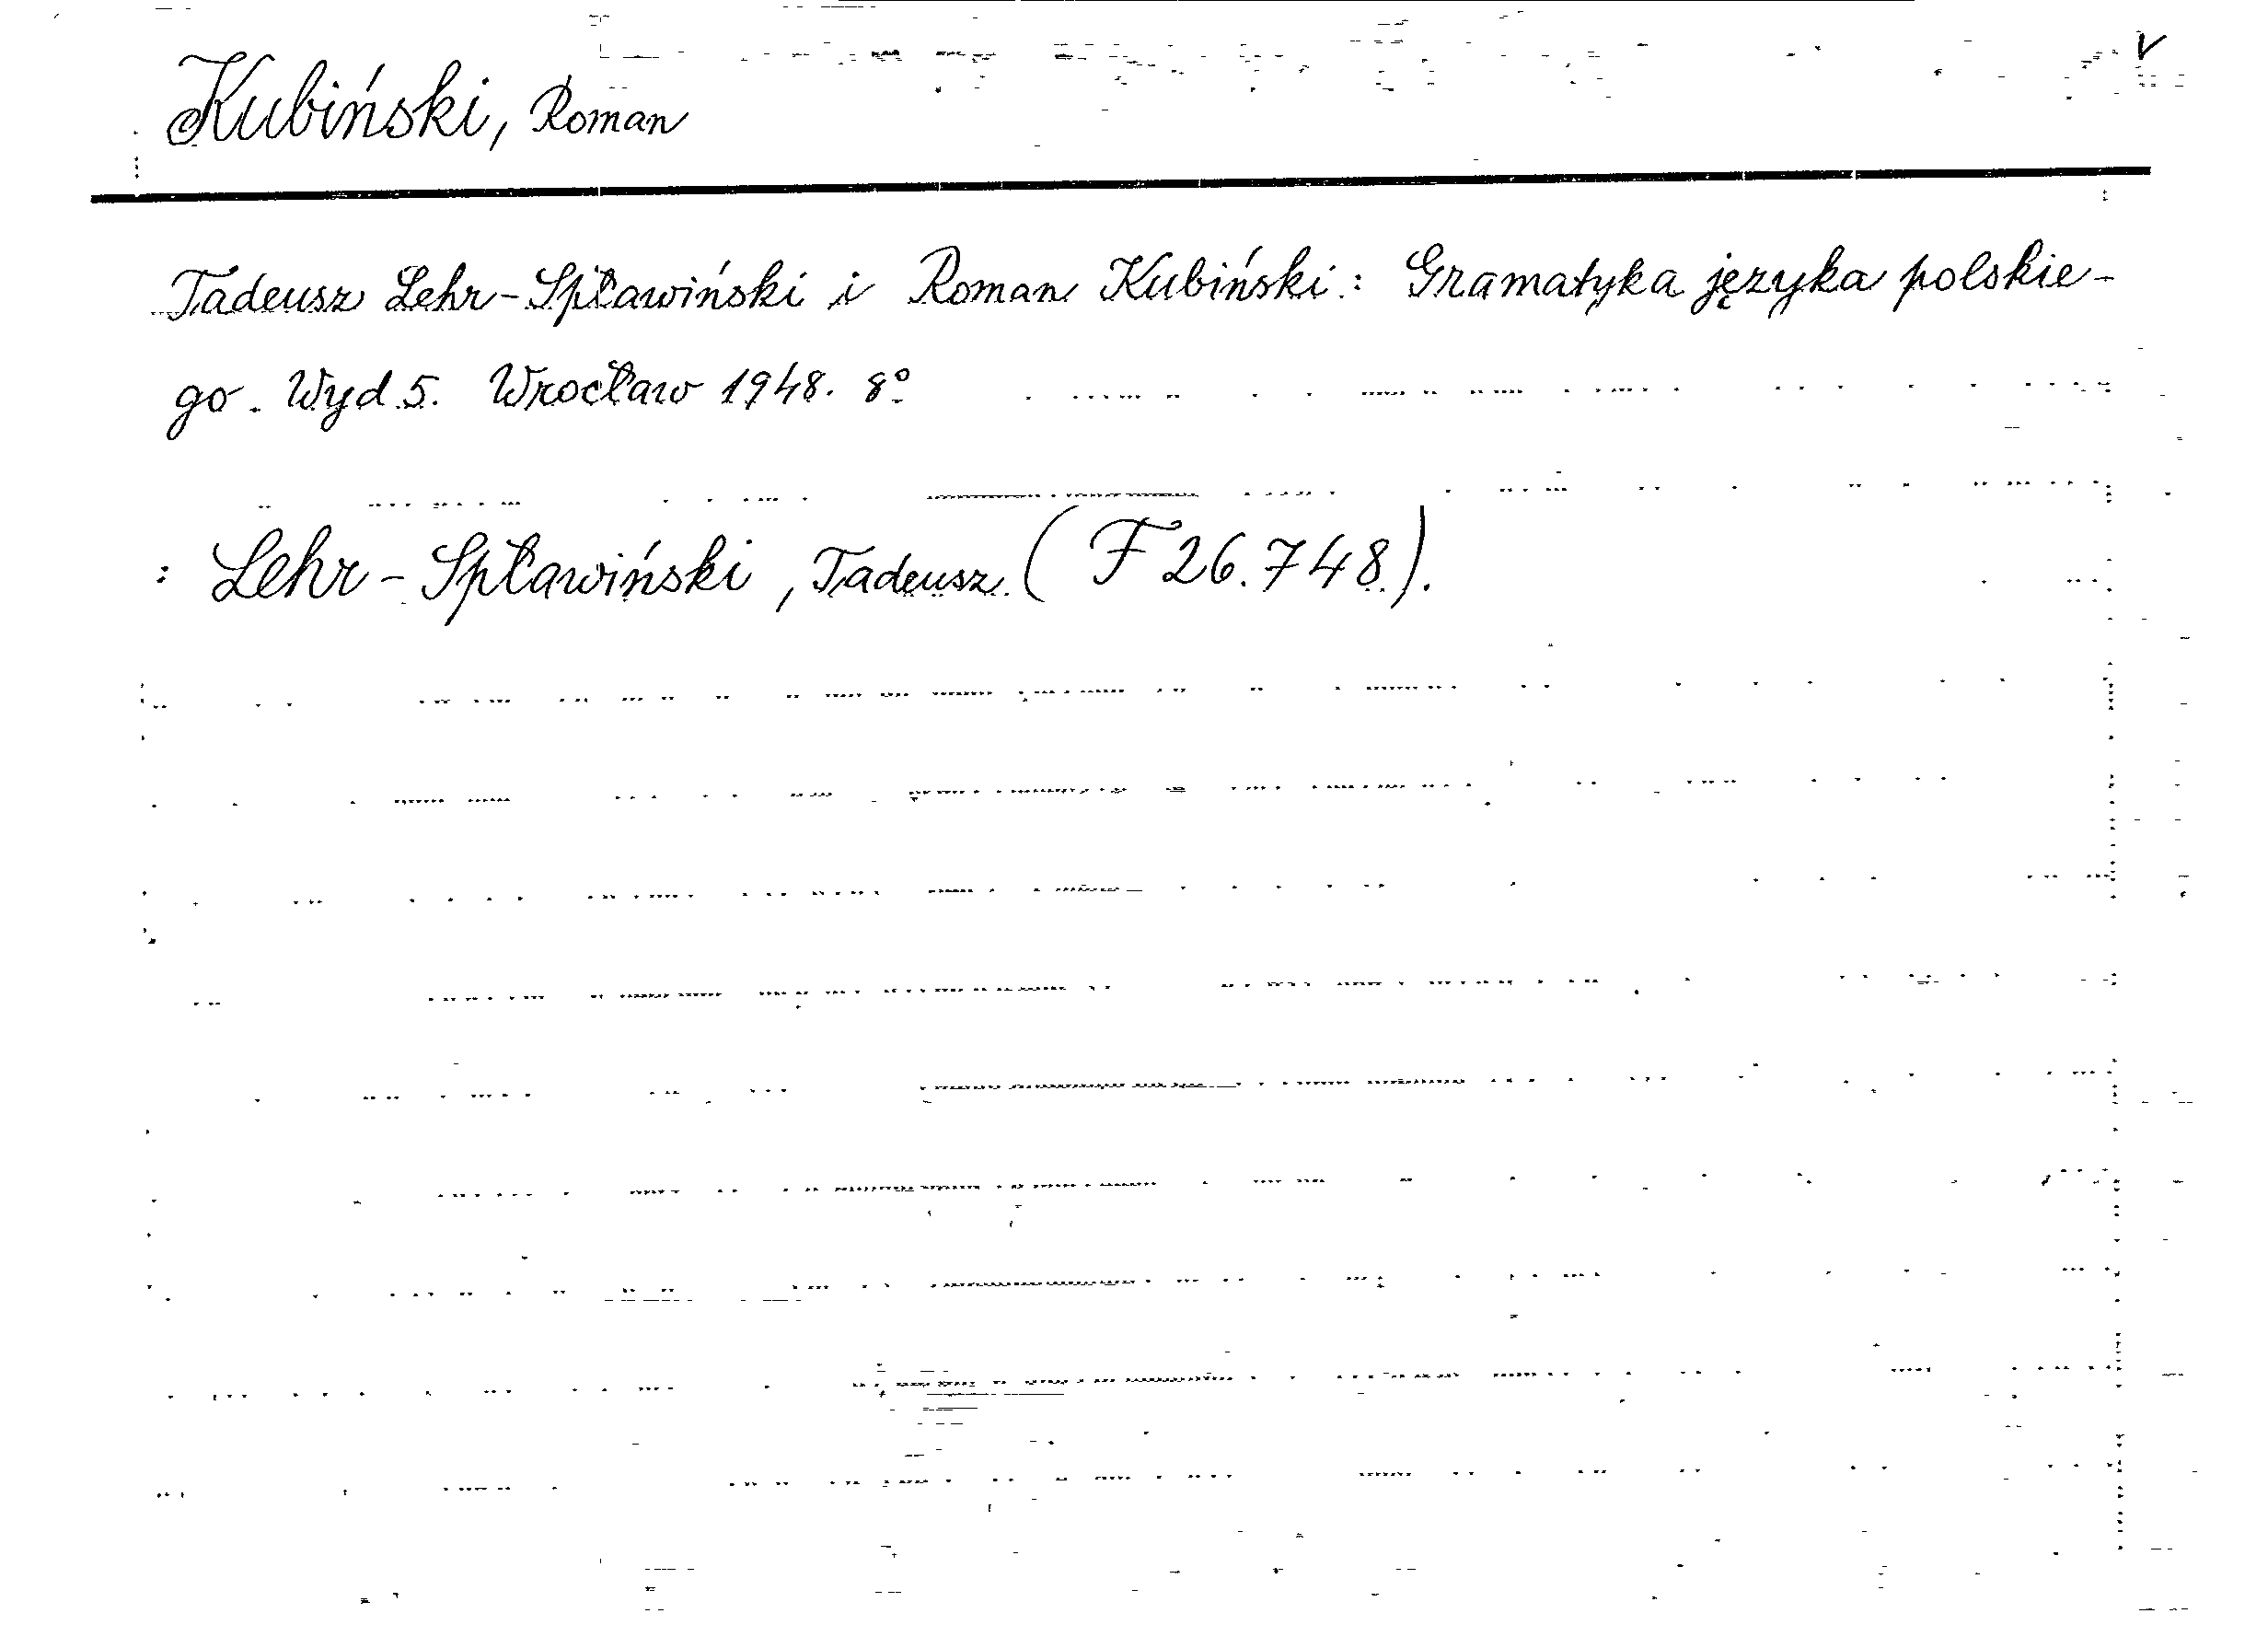 Kubiński, Roman
Tadeusz Lehr-Spławiński i Roman Kubiński: Gramatyka języka polskie-
go. Wyd. 5. Wrocław 1948. 8°
: Lehr-Spławiński, Tadeusz. (F 26.748).